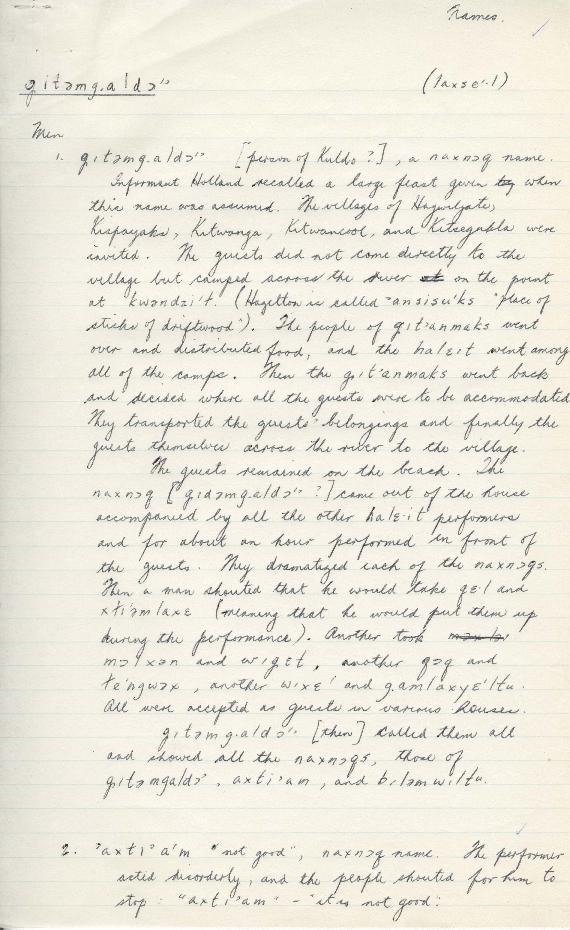 Names.
gitəmg.aldɔ'' (laxse'·l)
Men
1. gıtəmg.aldɔ'' [person of Kuldo ?], a naxnɔq name.
Informant Holland recalled a large feast given when
this name was assumed. The villages of Hagwilgate,
Kispayaks, Kitwanga, Kitwancool, and Kitsegukla were
invited. The guests did not come directly to the
village but camped across the river on the point
at kwəndzi't. (Hazelton is called 'ansisu'ks "place of
sticks of driftwood"). The people of gıt'anmaks went
over and distributed food, and the halɛit went among
all of the camps. Then the gıt'anmaks went back
and decided where all the guests were to be accommodated
They transported the guests' belongings and finally the
guests themselves across the river to the village.
The guests remained on the beach. The
naxnɔq ["gıdəmg.aldɔ'' ?] came out of the house
accompanied by all the other halɛ·it performers
and for about an hour performed in front of
the guests. They dramatized each of the naxnɔqs.
Then a man shouted that he would take gɛ·l and
xti'əmlaxɛ (meaning that he would put them up
during the performance). Another took
məlxən and wıgɛt, another qɔq and
te'ngwəx, another wıxɛ' and g.amlaxyɛ'ltu.
All were accepted as guests in various houses.
gıtəmg.aldɔ'' [then] called them all
and showed all the naxnɔqs, those of
gıtəmgaldɔ', axti'am, and bıləmwıltu.
2. 'axti'a'm "not good", naxnɔq name. The performer
acted disorderly, and the people shouted for him to
stop: "axti'am" - "it is not good".